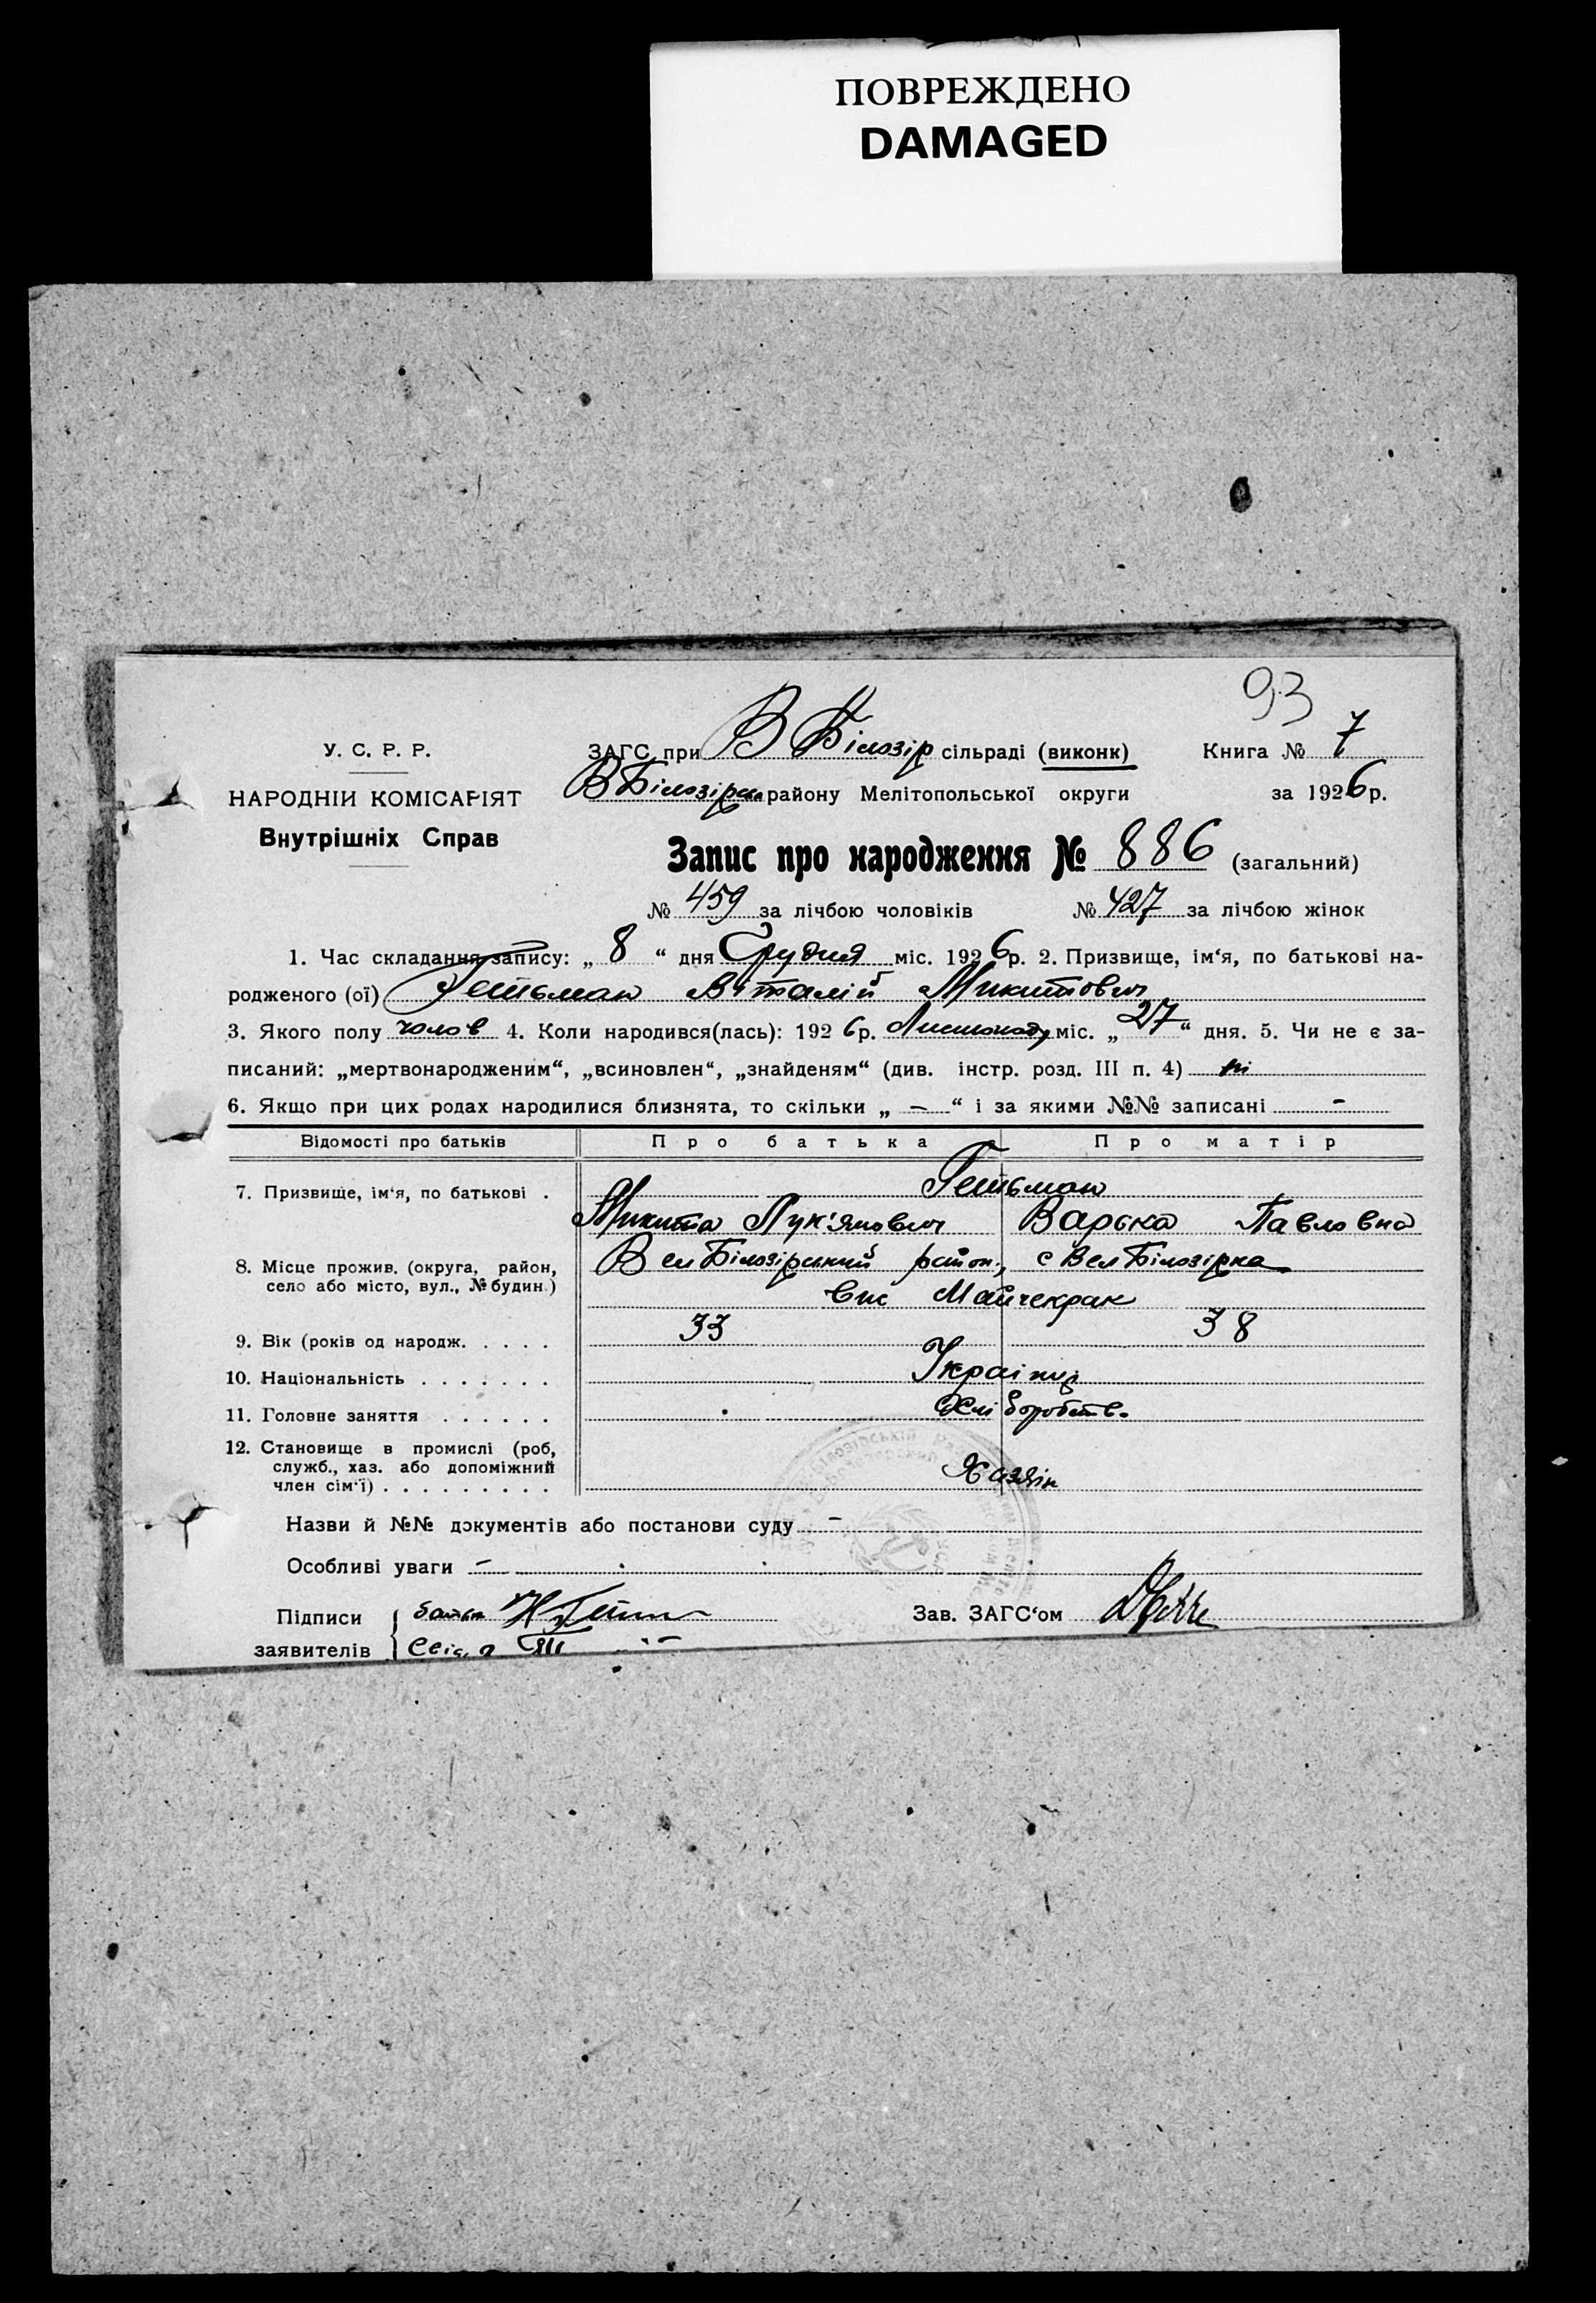 ПОВРЕЖДЕНО
DAMAGED
93
У. С. Р. Р.
НАРОДНІЙ КОМІСАРІЯТ
Внутрішніх Справ
ЗАГС при В Білозір сільраді (виконк) Книга № 7
В Білозірськ району Мелітопольської округи за 1926 р.
Запис про народження № 886 (загальний)
№ 459 за лічбою чоловіків № 427 за лічбою жінок
1. Час складання запису: „ 8 “ дня Грудня міс. 1926 р. 2. Призвище, ім‘я, по батькові на-
родженого (ої) Гетьман Віталій Микитович
3. Якого полу чолов 4. Коли народився(лась): 1926 р. Листопаду міс. „ 27 “ дня. 5. Чи не є за-
писаний: „мертвонародженим“, „всиновлен“, „знайденям“ (див. інстр. розд. III п. 4) ні
6. Якщо при цих родах народилися близнята, то скільки „ — “ і за якими №№ записані -
Відомості про батьків Про батька Про матір
7. Призвище, ім‘я, по батькові . Гетьман
Микита Лук'янович Варька Павловна
8. Місце прожив. (округа, район, село або місто, вул., № будин.) Вел Білозірський район, с Вел Білозірка
9. Вік (років од народж. . . . . 33 38
10. Національність . . . . . . . Українці
11. Головне заняття . . . . . . Хліборобств.
12. Становище в промислі (роб,
служб., хаз. або допоміжний
член сім‘ї) . . . . . . . . . Хазяїн
Назви й №№ документів або постанови суду -
Особливі уваги -
Підписи батьк
Зав. ЗАГС‘ом
заявителів